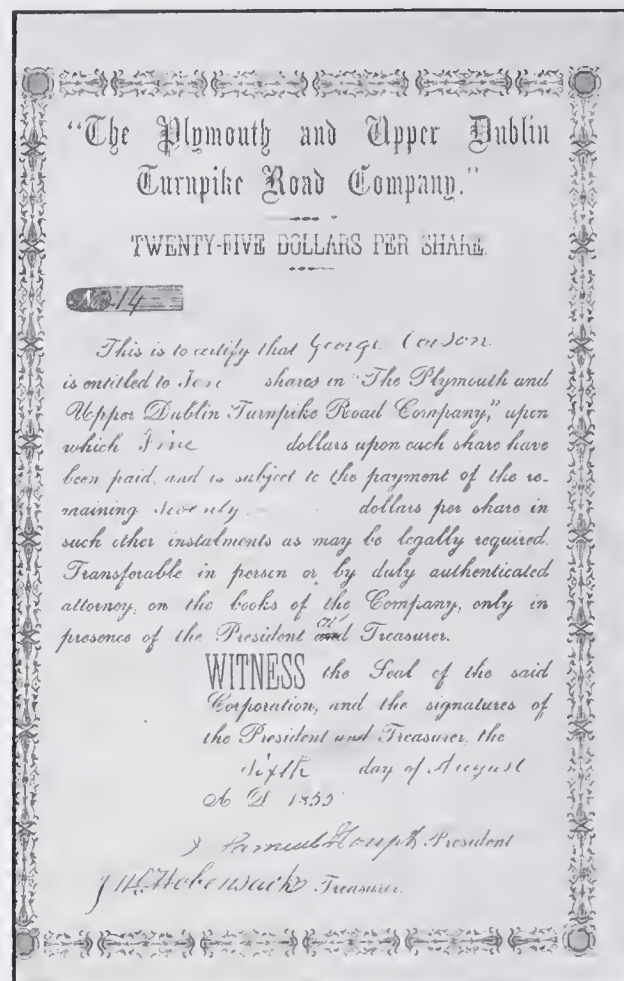 "The Plymouth and Upper Dublin
Turnpike Road Company."
TWENTY-FIVE DOLLARS PER SHARE.
No. 14
This is to certify that George Corson
is entitled to Ten shares in "The Plymouth and
Upper Dublin Turnpike Road Company," upon
which Five dollars upon each share have
been paid, and is subject to the payment of the re-
maining Twenty dollars per share in
such other instalments as may be legally required.
Transferable in person or by duly authenticated
attorney, on the books of the Company, only in
presence of the President or and Treasurer.
WITNESS the Seal of the said
Corporation, and the signatures of
the President and Treasurer, the
Sixth day of August
A D 1855
Samuel Houpt President
Treasurer.